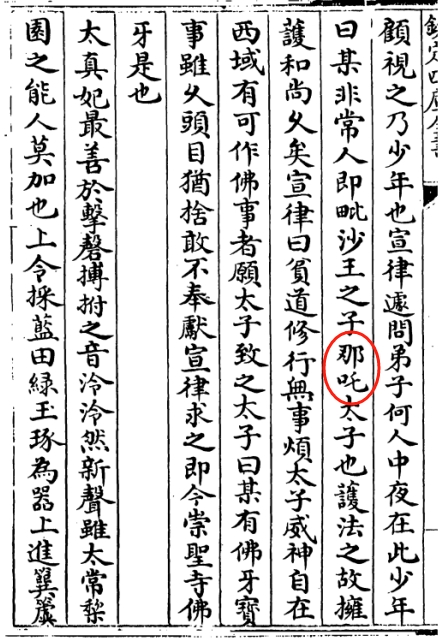 欽定四庫全書
顧視之乃少年也宣律遽問弟子何人中夜在此少年
曰某非常人即毗沙王之子那吒太子也護法之故擁
護和尚久矣宣律曰貧道修行無事煩太子威神自在
西域有可作佛事者願太子致之太子曰某有佛牙寳
事雖久頭目猶捨敢不奉獻宣律求之即今崇聖寺佛
牙是也
太真妃最善於擊磬搏拊之音泠泠然新聲雖太常棃
園之能人莫加也上令採藍田緑玉琢為器上進簨簴